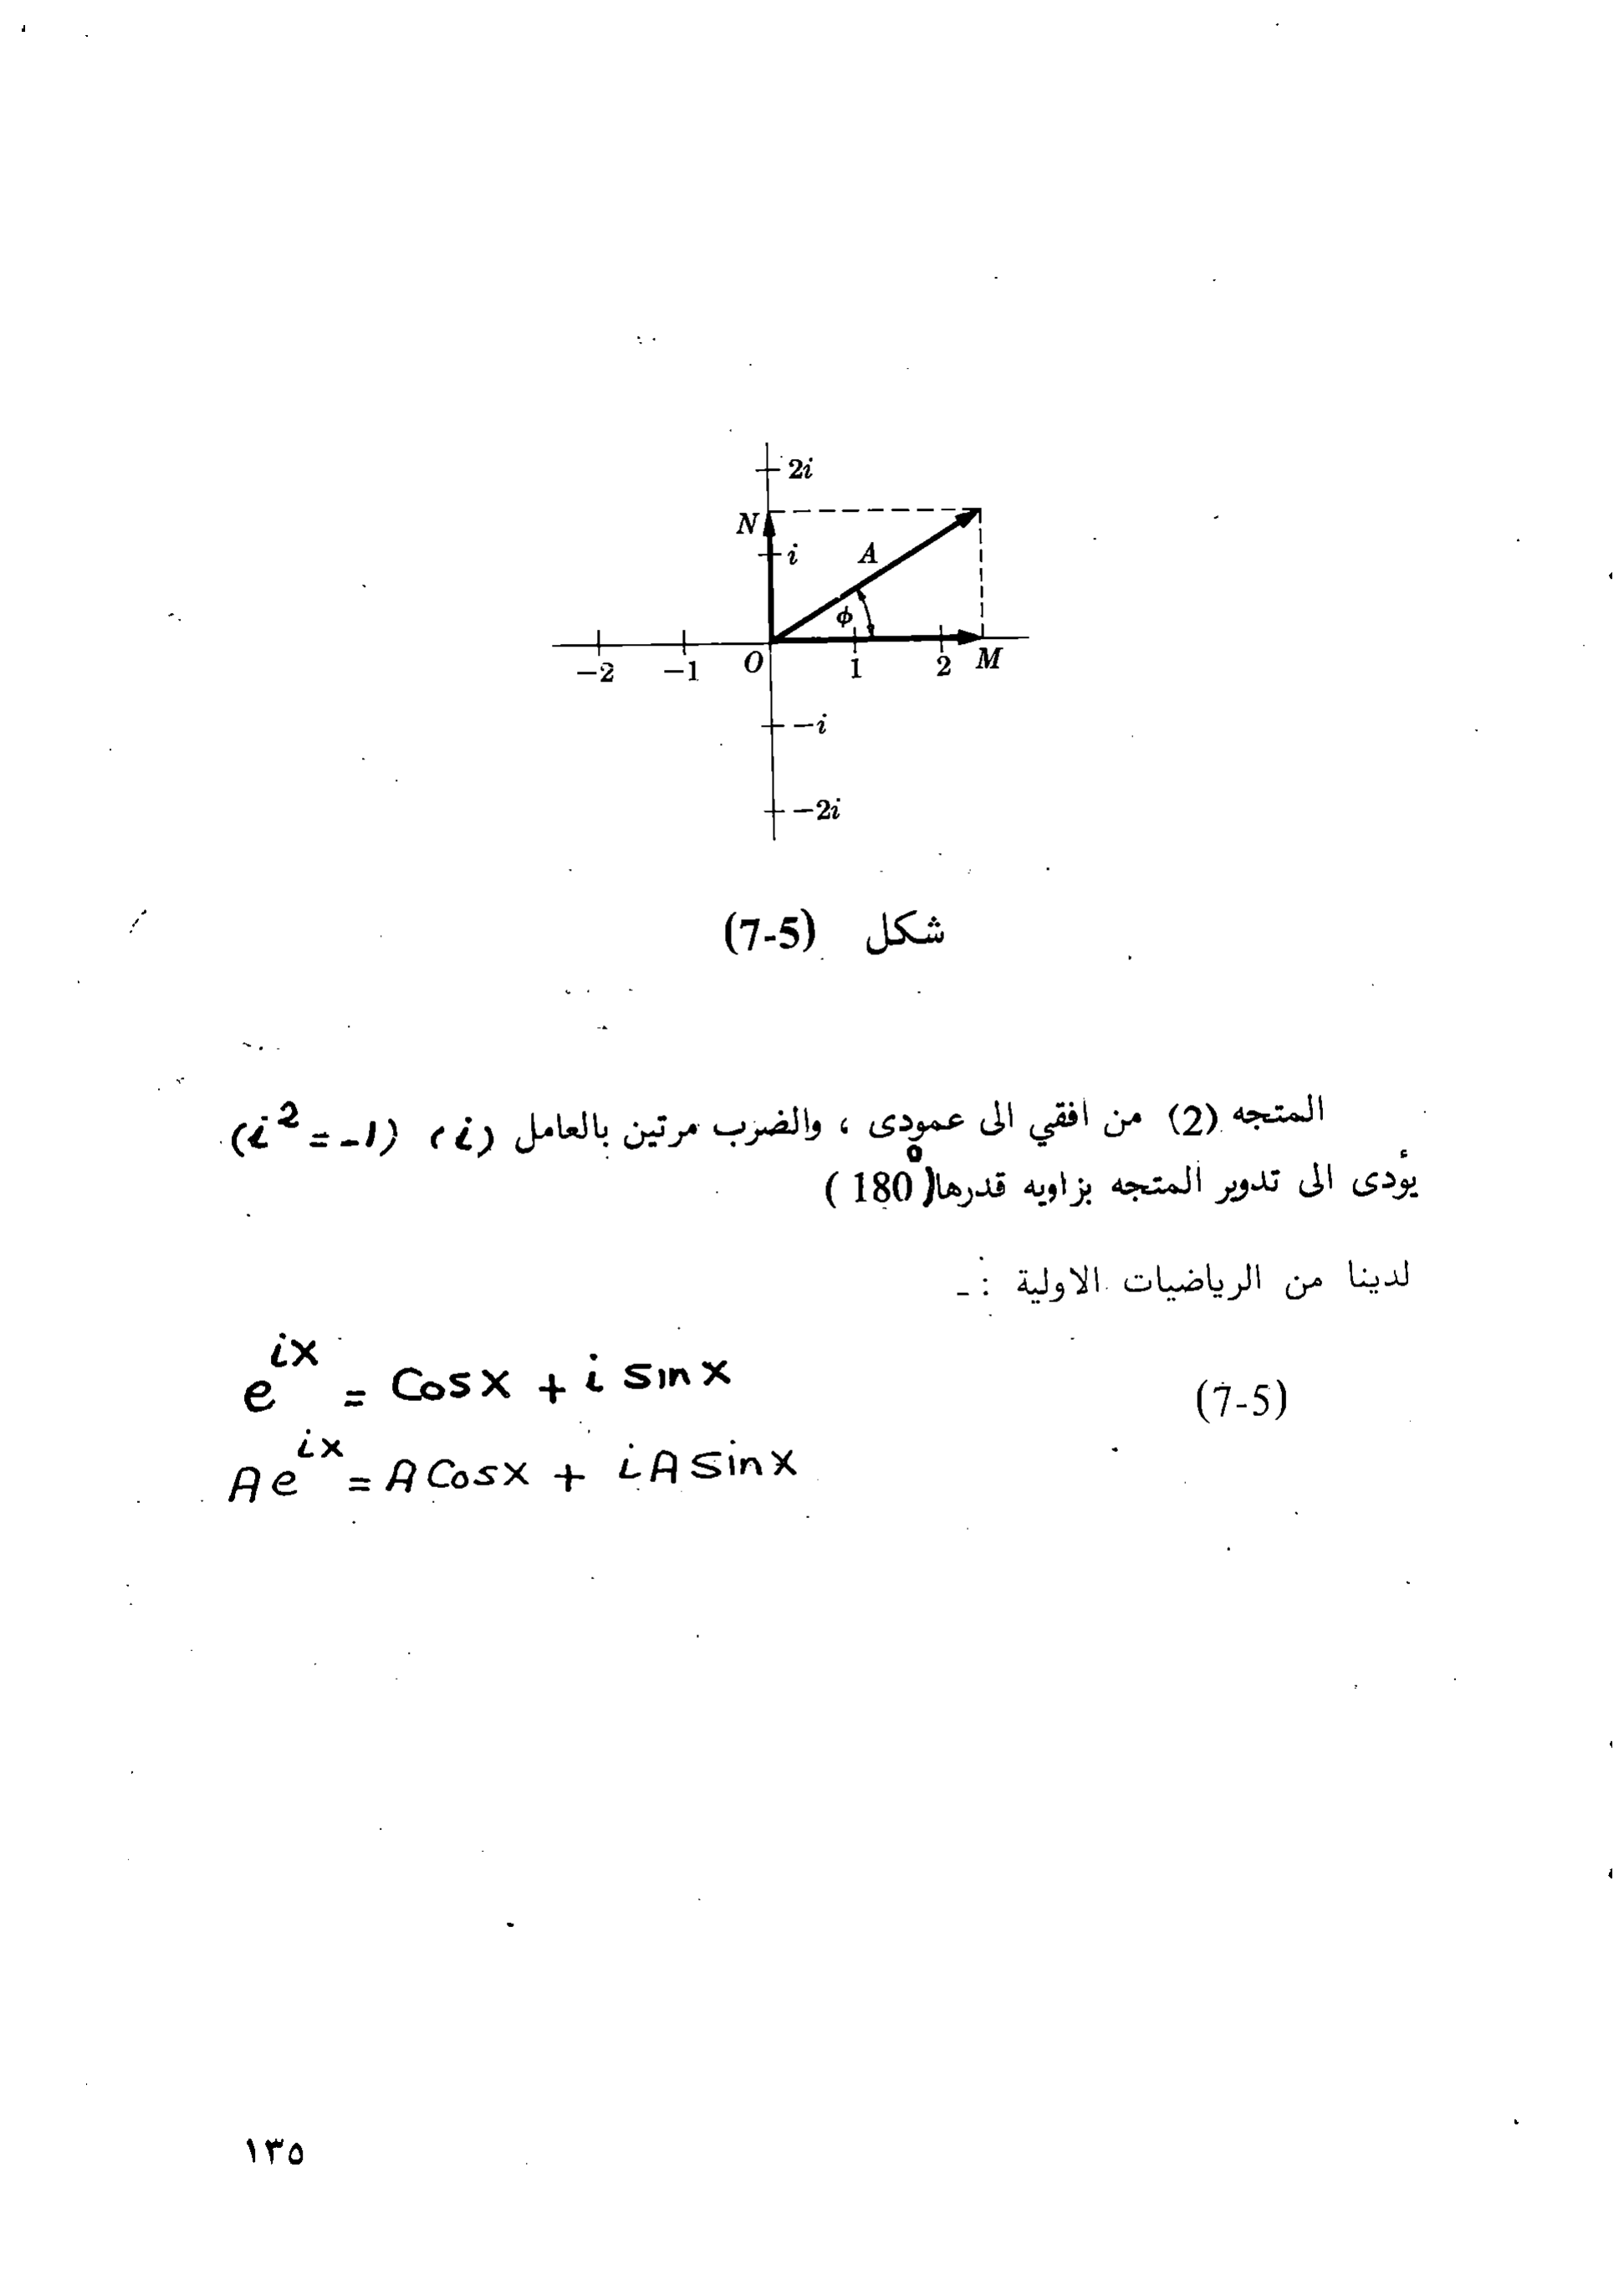 2i
N
i
A
ϕ
−2 −1 O 1 2 M
−i
−2i
شكل (7-5)
المتجه (2) من افقي الى عمودى ، والضرب مرتين بالعامل (i) ، (i² = -1)
يؤدى الى تدوير المتجه بزاويه قدرها (180°)
لدينا من الرياضيات الاولية :ـ
e^{ix} = Cosx + i sinx (7-5)
Ae^{ix} = A Cosx + i A Sinx
١٣٥